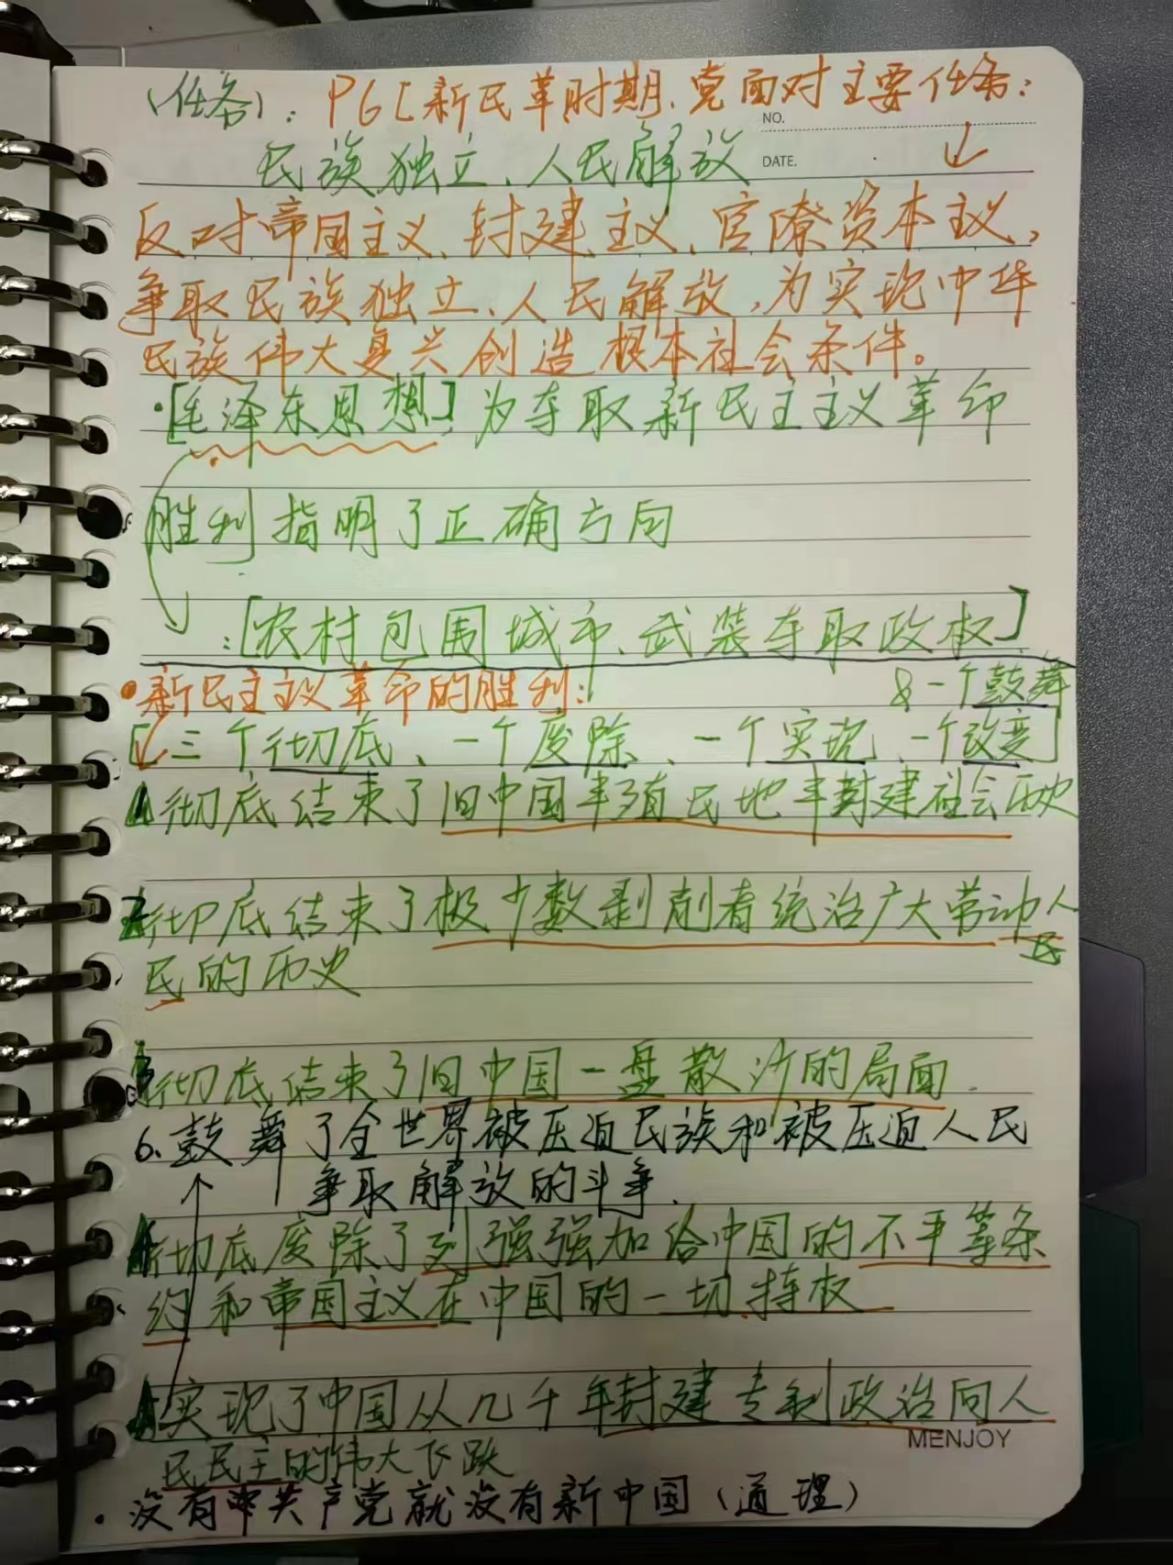 (任务): P6[新民革时期、党面对主要任务:
NO.
民族独立、人民解放
DATE.
反对帝国主义、封建主义、官僚资本主义,
争取民族独立、人民解放,为实现中华
民族伟大复兴创造根本社会条件。
·[毛泽东思想]为夺取新民主主义革命
胜利指明了正确方向
:[农村包围城市、武装夺取政权]
•新民主主义革命的胜利:
& 一个鼓舞
[三个彻底、一个废除、一个实现、一个改变]
1彻底结束了旧中国半殖民地半封建社会历史
2彻底结束了极少数剥削者统治广大劳动人民
民的历史
3彻底结束了旧中国一盘散沙的局面.
6.鼓舞了全世界被压迫民族和被压迫人民
争取解放的斗争.
彻底废除了列强强加给中国的不平等条
约和帝国主义在中国的一切特权
实现了中国从几千年封建专制政治向人
民民主的伟大飞跃
MENJOY
·没有中共产党就没有新中国(道理)